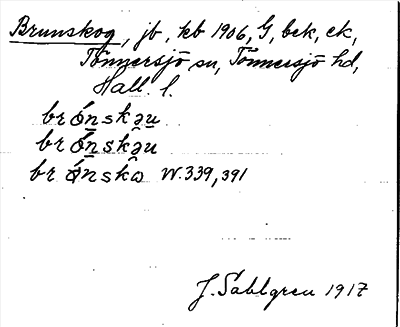 Brunskog, jb, kb 1906, G, bek, ek,
Tönnersjö sn, Tönnersjö hd,
Hall. l.
brǿnskəu
brǿnskə̂u
brǿnskô W. 339, 391
J. Sahlgren 1917